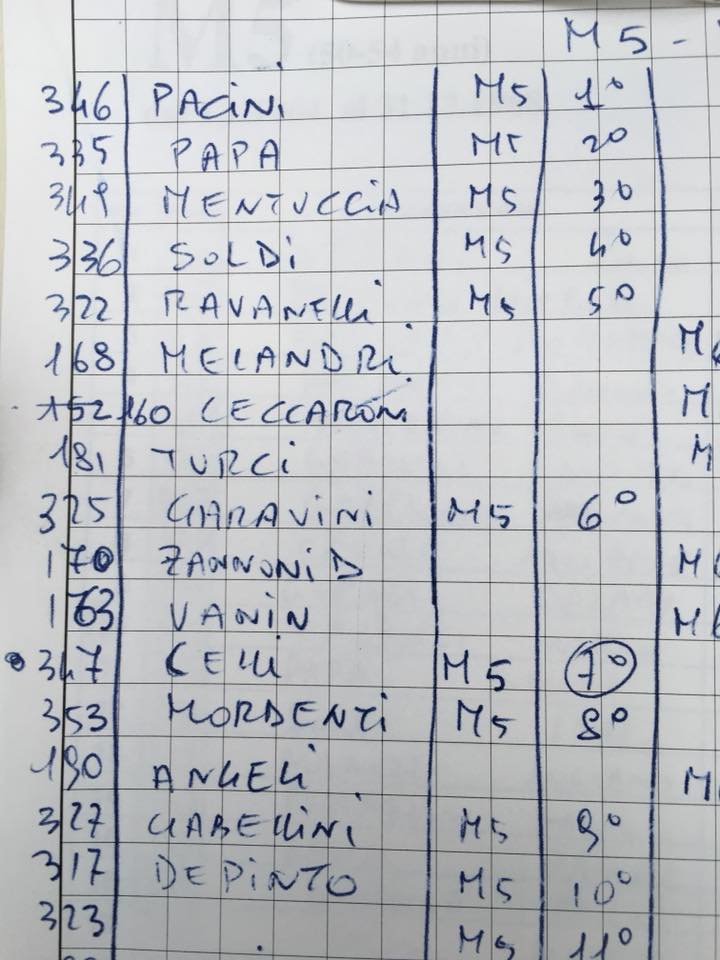 M5 -
346 PACINI M5 1°
335 PAPA M5 2°
349 MENTUCCIA M5 3°
336 SOLDI M5 4°
322 RAVANELLI M5 5°
168 MELANDRI M
152 160 CECCARONI M
181 TURCI M
325 GARAVINI M5 6°
170 ZANNONI D M
163 VANIN M
347 CELLI M5 7°
353 MORDENTI M5 8°
190 ANGELI M
327 GABELLINI M5 9°
317 DEPINTO M5 10°
323 M5 11°